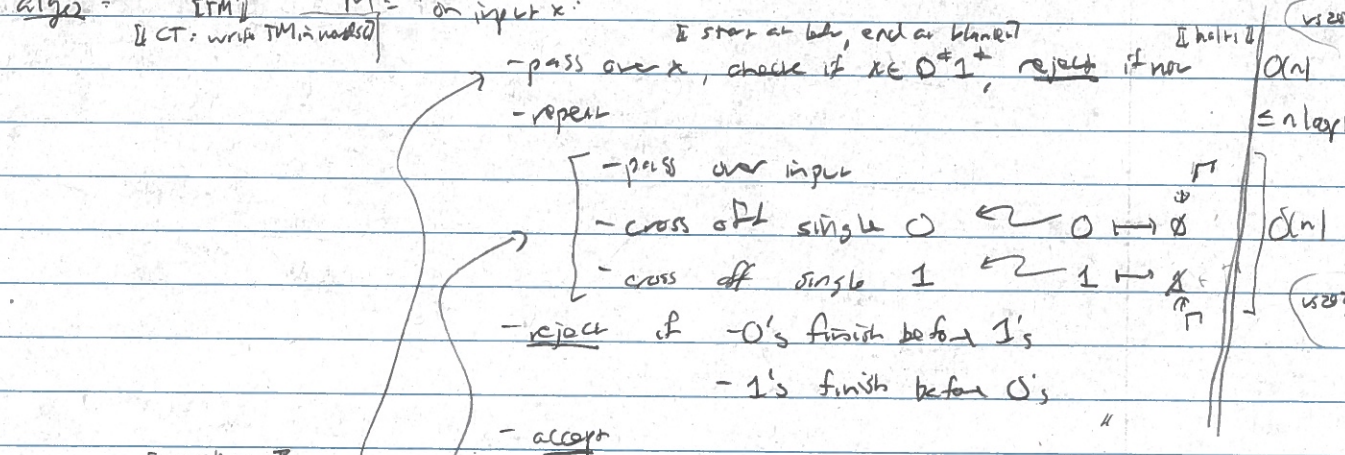 algo: [TM] M = "on input x:
[[CT: write TM in words]] [[start at left, end at blanks]] [[halts]]
- pass over x, check if x ∈ 0*1*, reject if not O(n)
- repeat ≤ n loops
- pass over input Γ
- cross off single 0 0 ↦ 0̸ O(n)
- cross off single 1 1 ↦ 1̸
Γ
- reject if - 0's finish before 1's
- 1's finish before 0's
- accept "